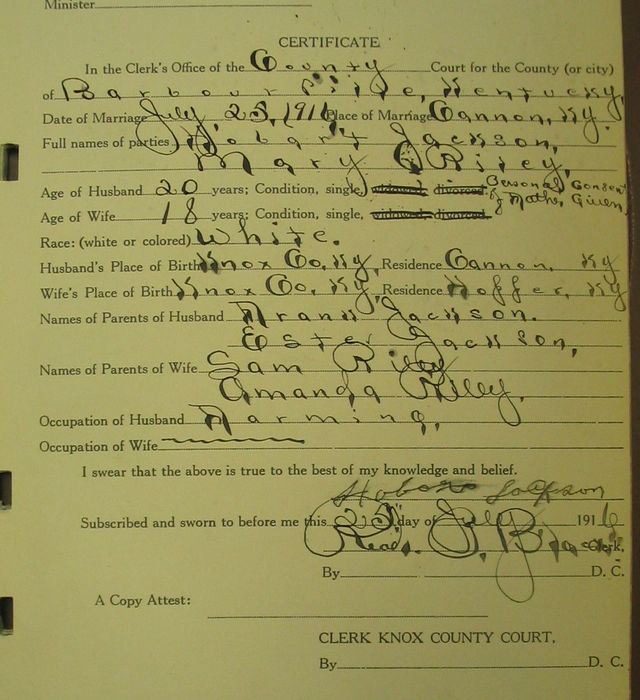 Minister
CERTIFICATE
In the Clerk's Office of the County Court for the County (or city)
of Barbourville, Kentucky,
Date of Marriage July 23, 1916 Place of Marriage Cannon, Ky.
Full names of parties Hobart Jackson,
Mary Riley,
Age of Husband 20 years; Condition, single, widowed, divorced. Personal Consent
of Mother Given
Age of Wife 18 years; Condition, single, widowed, divorced.
Race: (white or colored) White.
Husband's Place of Birth Knox Co, Ky, Residence Cannon, Ky
Wife's Place of Birth Knox Co, Ky, Residence Hoffer, Ky
Names of Parents of Husband Frank Jackson.
Ester Jackson,
Names of Parents of Wife Sam Riley
Amanda Riley,
Occupation of Husband Farming,
Occupation of Wife
I swear that the above is true to the best of my knowledge and belief.
Hobart Jackson
Subscribed and sworn to before me this day of July 1916
Read P. Black Clerk.
By D. C.
A Copy Attest:
CLERK KNOX COUNTY COURT.
By D. C.